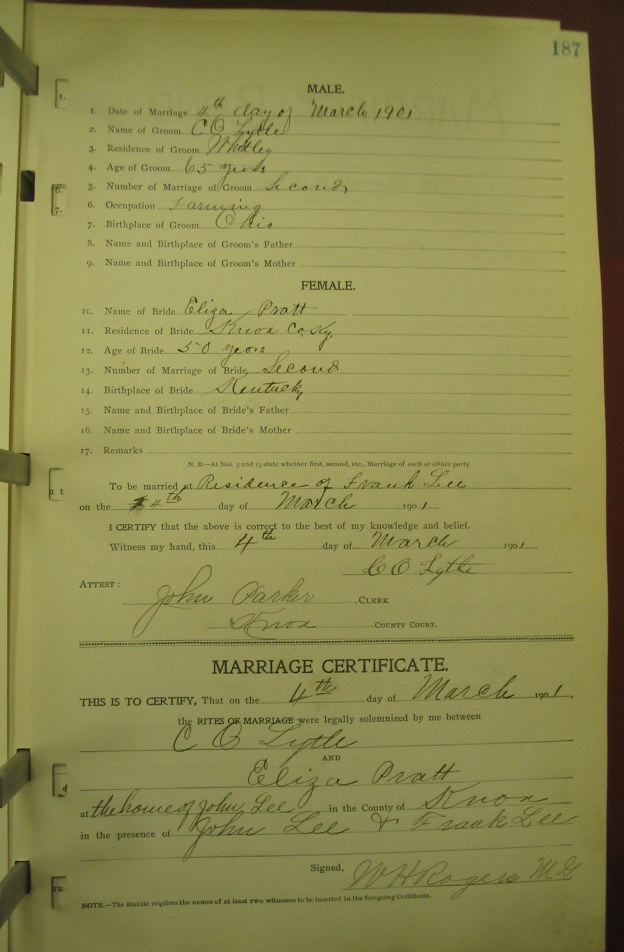 187
MALE.
1. Date of Marriage 4th day of March 1901
2. Name of Groom C O Lytle
3. Residence of Groom Whitley
4. Age of Groom 65 years
5. Number of Marriage of Groom Second
6. Occupation Farming
7. Birthplace of Groom Ohio
8. Name and Birthplace of Groom's Father
9. Name and Birthplace of Groom's Mother
FEMALE.
10. Name of Bride Eliza Pratt
11. Residence of Bride Knox Co, Ky.
12. Age of Bride 50 years
13. Number of Marriage of Bride Second
14. Birthplace of Bride Kentucky
15. Name and Birthplace of Bride's Father
16. Name and Birthplace of Bride's Mother
17. Remarks
N. B.—At Nos. 5 and 13 state whether first, second, etc., Marriage of each or either party.
To be married at Residence of Frank Lee
on the 4th day of March 1901
I CERTIFY that the above is correct to the best of my knowledge and belief.
Witness my hand, this 4th day of March 1901
C O Lytle
ATTEST:
John Parker CLERK
Knox COUNTY COURT.
MARRIAGE CERTIFICATE.
THIS IS TO CERTIFY, That on the 4th day of March 1901.
the RITES OF MARRIAGE were legally solemnized by me between
C O Lytle
AND
Eliza Pratt
at the home of John Lee in the County of Knox
in the presence of John Lee & Frank Lee
Signed, W H Rogers M G
NOTE.—The Statute requires the names of at least two witnesses to be inserted in the foregoing Certificate.